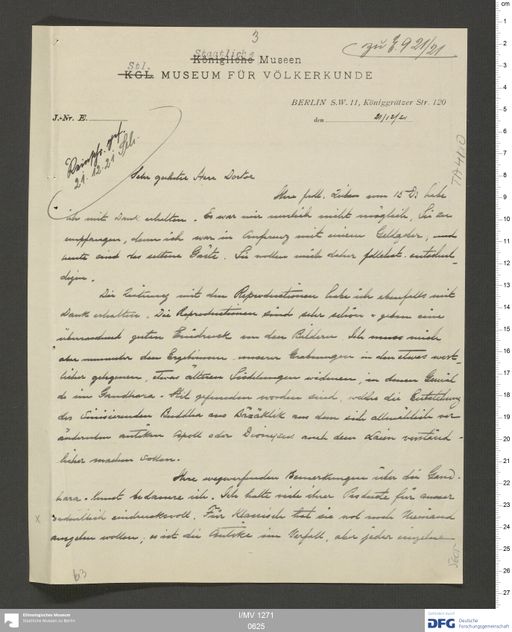 3
zu E 921/21
Staatliche
Königliche Museen
Stl.
KGL. MUSEUM FÜR VÖLKERKUNDE
BERLIN S.W. 11, Königgrätzer Str. 120
J.-Nr. E.
den 21/12/21
21.12.21
Sehr geehrter Herr Doctor
Ihre frdl. Zeilen vom 15 Ds habe
ich mit Dank erhalten. Es war mir wirklich nicht möglich, Sie zu
empfangen, denn ich war in Conferenz mit einem Geldgeber, und
heute sind das seltene Gäste. Sie wollen mich daher gütigst entschul-
digen.
Die Zeitung mit den Reproductionen habe ich ebenfalls mit
Dank erhalten. Die Reproductionen sind sehr schön & geben eine
überraschend guten Eindruck von den Bildern. Ich muss mich
aber nunmehr den Ergebnissen unserer Grabungen in den etwas west-
licher gelegenen, etwas älteren Siedelungen widmen, in denen Gemäl-
de im Gandhara-Stil gefunden worden sind, welche die Entstehung
des sinisierenden Buddha aus Bäzäklik aus dem sich allmählich ver-
ändernden antiken Apoll oder Dionysos auch dem Laien verständ-
licher machen sollen.
Ihre wegwerfenden Bemerkungen über die Gand-
hara-Kunst bedauere ich. Ich halte viele ihrer Producte für ausser-
ordentlich eindrucksvoll. Für klassisch hat sie wol noch Niemand
ausgeben wollen; es ist die Antike im Verfall, aber jeder einzelne
63
I/MV 1271
0625
Ethnologisches Museum
Staatliche Museen zu Berlin
DFG Deutsche
Forschungsgemeinschaft